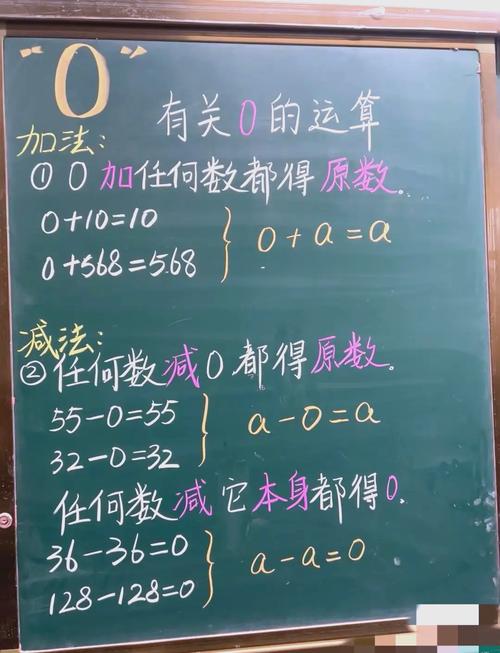 “0”
有关0的运算
加法:
①0加任何数都得原数。
0+10=10
0+568=568
0+a=a
减法:
②任何数减0都得原数。
55-0=55
32-0=32
a-0=a
任何数减它本身都得0.
36-36=0
128-128=0
a-a=0